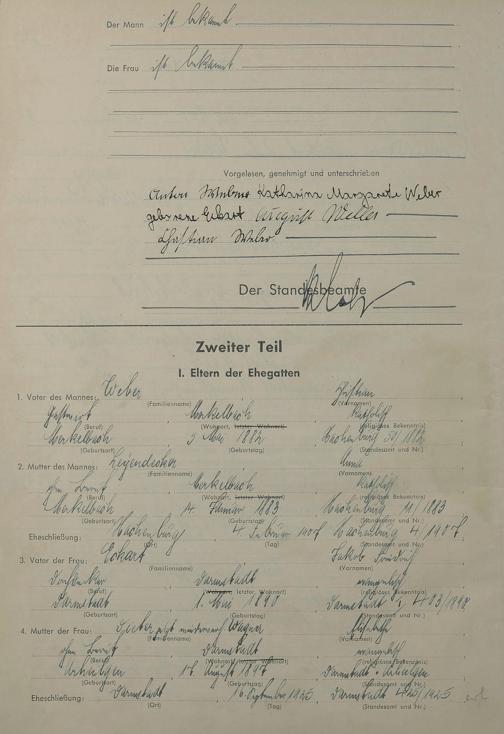 Der Mann ist bekannt
Die Frau ist bekannt
Vorgelesen, genehmigt und unterschrieben
Anton Katharina Margarete Weber
geborene August
Christian Weber
Der Standesbeamte
Zweiter Teil
I. Eltern der Ehegatten
1. Vater des Mannes: Weber Christian
(Familienname) (Vornamen)
Gastwirt Merkelbach katholisch
(Beruf) (Wohnort, letzter Wohnort) (religiöses Bekenntnis)
Merkelbach 3 Mai 1882 Hachenburg
(Geburtsort) (Geburtstag) (Standesamt und Nr.)
2. Mutter des Mannes: Leyendecker Anna
(Familienname) (Vornamen)
ohne Beruf Merkelbach katholisch
(Beruf) (Wohnort, letzter Wohnort) (religiöses Bekenntnis)
Merkelbach 14 1883 Hachenburg 11/1883
(Geburtsort) (Geburtstag) (Standesamt und Nr.)
Eheschließung: Hachenburg 4 Februar 1907 Hachenburg 4/1907
(Ort) (Tag) (Standesamt und Nr.)
3. Vater der Frau: Jakob Friedrich
(Familienname) (Vornamen)
Darmstadt evangelisch
(Beruf) (Wohnort, letzter Wohnort) (religiöses Bekenntnis)
Darmstadt 1. Mai Darmstadt
(Geburtsort) (Geburtstag) (Standesamt und Nr.)
4. Mutter der Frau: Wagner Elisabeth
(Familienname) (Vornamen)
ohne Beruf Darmstadt evangelisch
(Beruf) (Wohnort, letzter Wohnort) (religiöses Bekenntnis)
Arheilgen August 1897 Darmstadt - Arheilgen
(Geburtsort) (Geburtstag) (Standesamt und Nr.)
Eheschließung: Darmstadt 16 September 1925 Darmstadt /1925
(Ort) (Tag) (Standesamt und Nr.)